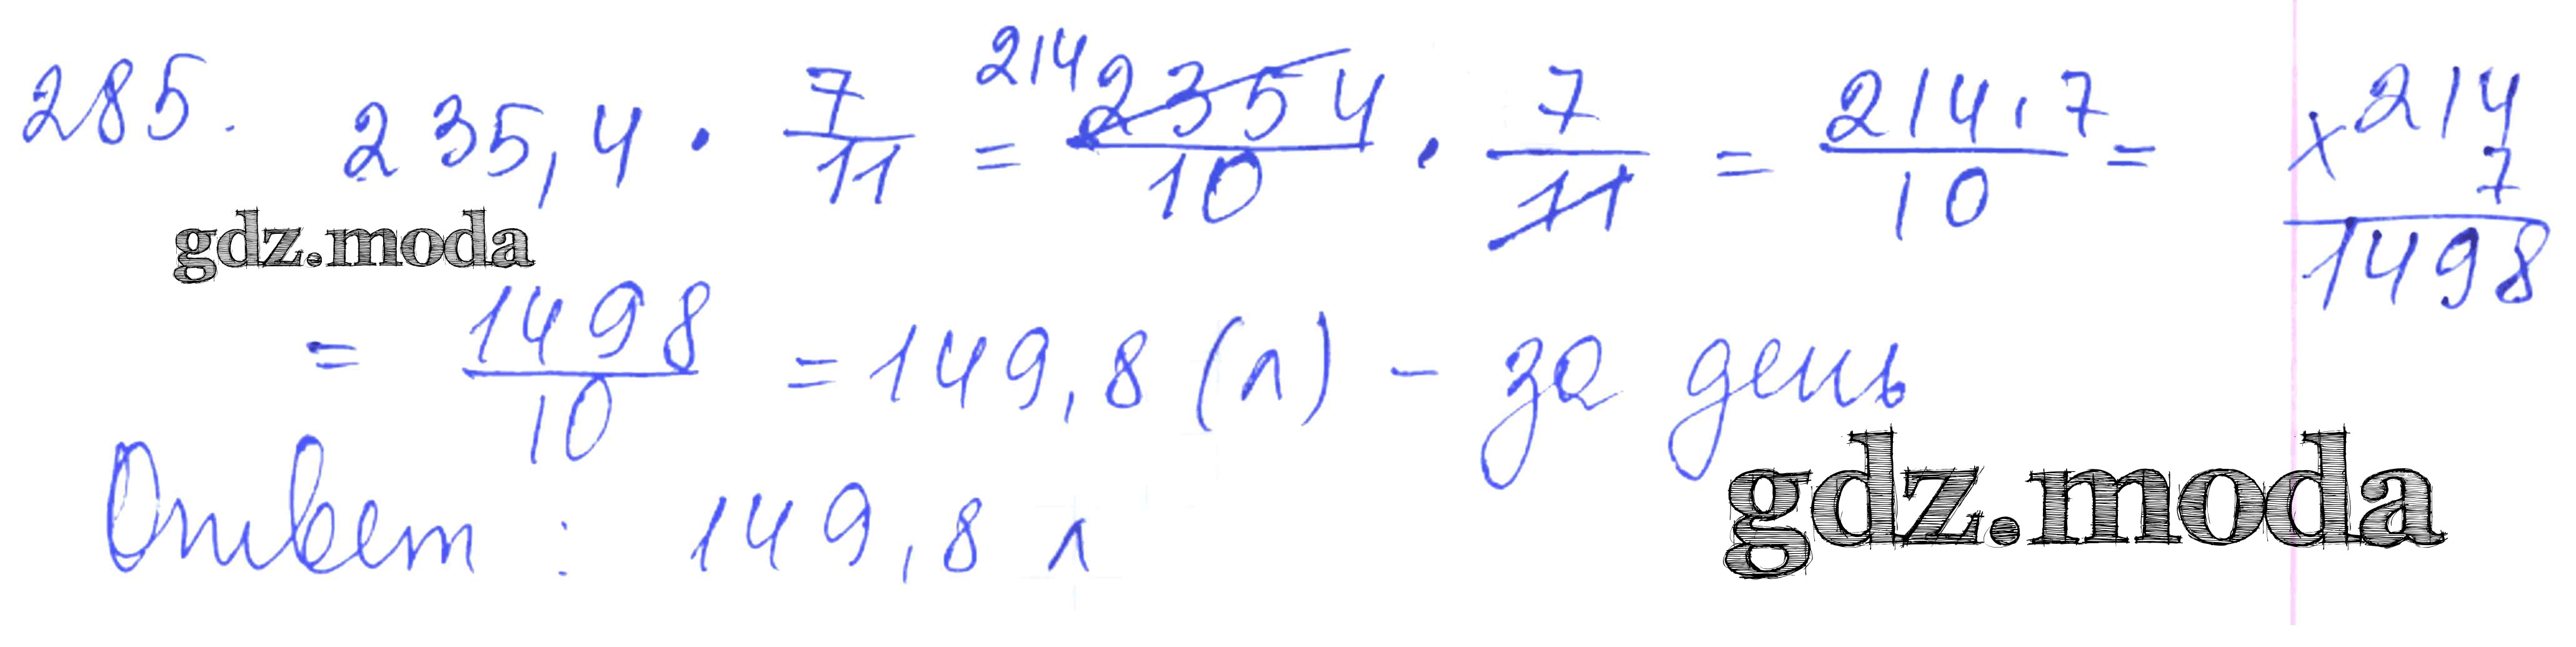 285. 235,4 · 7/11 = 214 2354/10 · 7/11 = 214·7/10 = × 214 7 1498
gdz.moda
= 1498/10 = 149,8 (л) – за день
Ответ : 149,8 л
gdz.moda